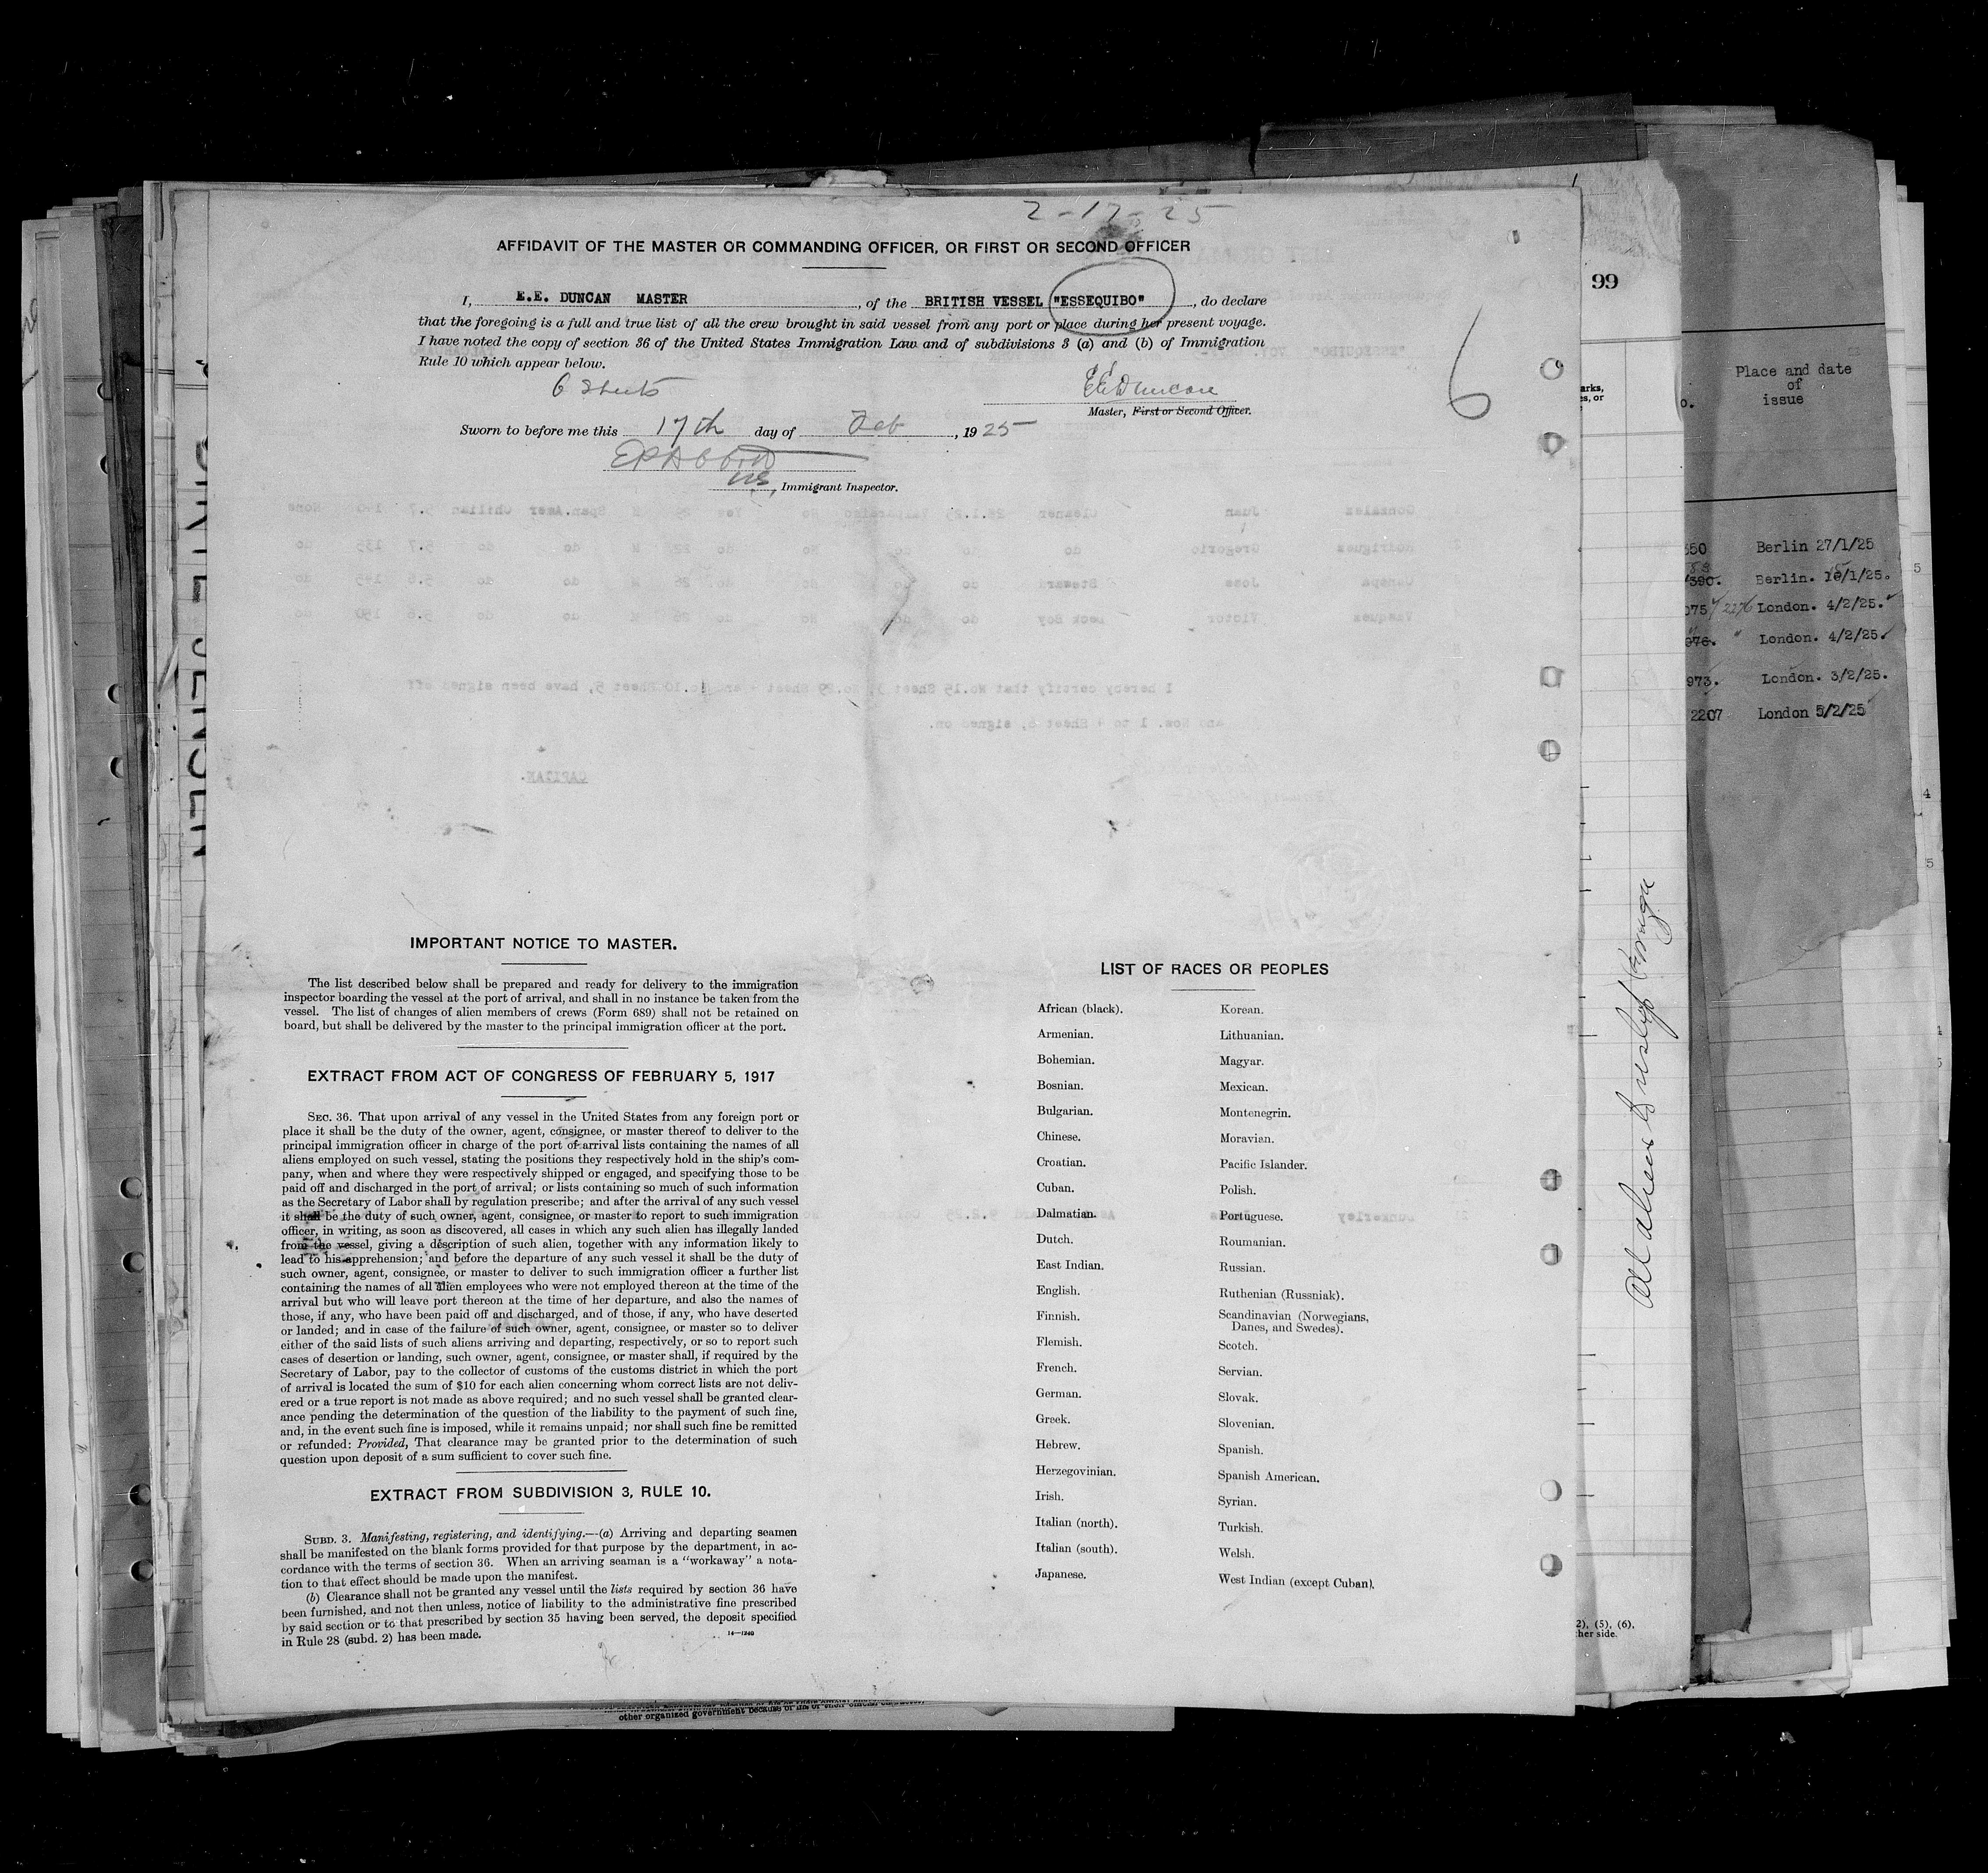 2-17-25
AFFIDAVIT OF THE MASTER OR COMMANDING OFFICER, OR FIRST OR SECOND OFFICER
I, E.E. DUNCAN MASTER, of the BRITISH VESSEL "ESSEQUIBO", do declare
that the foregoing is a full and true list of all the crew brought in said vessel from any port or place during her present voyage.
I have noted the copy of section 36 of the United States Immigration Law and of subdivisions 3 (a) and (b) of Immigration
Rule 10 which appear below.
6 Sheets
EEDuncan
6
Master, First or Second Officer.
Sworn to before me this 17th day of Feb, 1925
, Immigrant Inspector.
IMPORTANT NOTICE TO MASTER.
The list described below shall be prepared and ready for delivery to the immigration
inspector boarding the vessel at the port of arrival, and shall in no instance be taken from the
vessel. The list of changes of alien members of crews (Form 689) shall not be retained on
board, but shall be delivered by the master to the principal immigration officer at the port.
EXTRACT FROM ACT OF CONGRESS OF FEBRUARY 5, 1917
SEC. 36. That upon arrival of any vessel in the United States from any foreign port or
place it shall be the duty of the owner, agent, consignee, or master thereof to deliver to the
principal immigration officer in charge of the port of arrival lists containing the names of all
aliens employed on such vessel, stating the positions they respectively hold in the ship's com-
pany, when and where they were respectively shipped or engaged, and specifying those to be
paid off and discharged in the port of arrival; or lists containing so much of such information
as the Secretary of Labor shall by regulation prescribe; and after the arrival of any such vessel
it shall be the duty of such owner, agent, consignee, or master to report to such immigration
officer, in writing, as soon as discovered, all cases in which any such alien has illegally landed
from the vessel, giving a description of such alien, together with any information likely to
lead to his apprehension; and before the departure of any such vessel it shall be the duty of
such owner, agent, consignee, or master to deliver to such immigration officer a further list
containing the names of all alien employees who were not employed thereon at the time of the
arrival but who will leave port thereon at the time of her departure, and also the names of
those, if any, who have been paid off and discharged, and of those, if any, who have deserted
or landed; and in case of the failure of such owner, agent, consignee, or master so to deliver
either of the said lists of such aliens arriving and departing, respectively, or so to report such
cases of desertion or landing, such owner, agent, consignee, or master shall, if required by the
Secretary of Labor, pay to the collector of customs of the customs district in which the port
of arrival is located the sum of $10 for each alien concerning whom correct lists are not deliv-
ered or a true report is not made as above required; and no such vessel shall be granted clear-
ance pending the determination of the question of the liability to the payment of such fine,
and, in the event such fine is imposed, while it remains unpaid; nor shall such fine be remitted
or refunded: Provided, That clearance may be granted prior to the determination of such
question upon deposit of a sum sufficient to cover such fine.
EXTRACT FROM SUBDIVISION 3, RULE 10.
SUBD. 3. Manifesting, registering, and identifying.—(a) Arriving and departing seamen
shall be manifested on the blank forms provided for that purpose by the department, in ac-
cordance with the terms of section 36. When an arriving seaman is a "workaway" a nota-
tion to that effect should be made upon the manifest.
(b) Clearance shall not be granted any vessel until the lists required by section 36 have
been furnished, and not then unless, notice of liability to the administrative fine prescribed
by said section or to that prescribed by section 35 having been served, the deposit specified
in Rule 28 (subd. 2) has been made.
14—1240
LIST OF RACES OR PEOPLES
African (black). Korean.
Armenian. Lithuanian.
Bohemian. Magyar.
Bosnian. Mexican.
Bulgarian. Montenegrin.
Chinese. Moravian.
Croatian. Pacific Islander.
Cuban. Polish.
Dalmatian. Portuguese.
Dutch. Roumanian.
East Indian. Russian.
English. Ruthenian (Russniak).
Finnish. Scandinavian (Norwegians,
Danes, and Swedes).
Flemish. Scotch.
French. Servian.
German. Slovak.
Greek. Slovenian.
Hebrew. Spanish.
Herzegovinian. Spanish American.
Irish. Syrian.
Italian (north). Turkish.
Italian (south). Welsh.
Japanese. West Indian (except Cuban).
other organized government because of his or their official character,
99
Place and date
of
issue
Berlin 27/1/25
Berlin. /1/25.
London. 4/2/25.
London. 4/2/25.
973. London. 3/2/25.
2207 London 5/2/25
2), (5), (6),
her side.